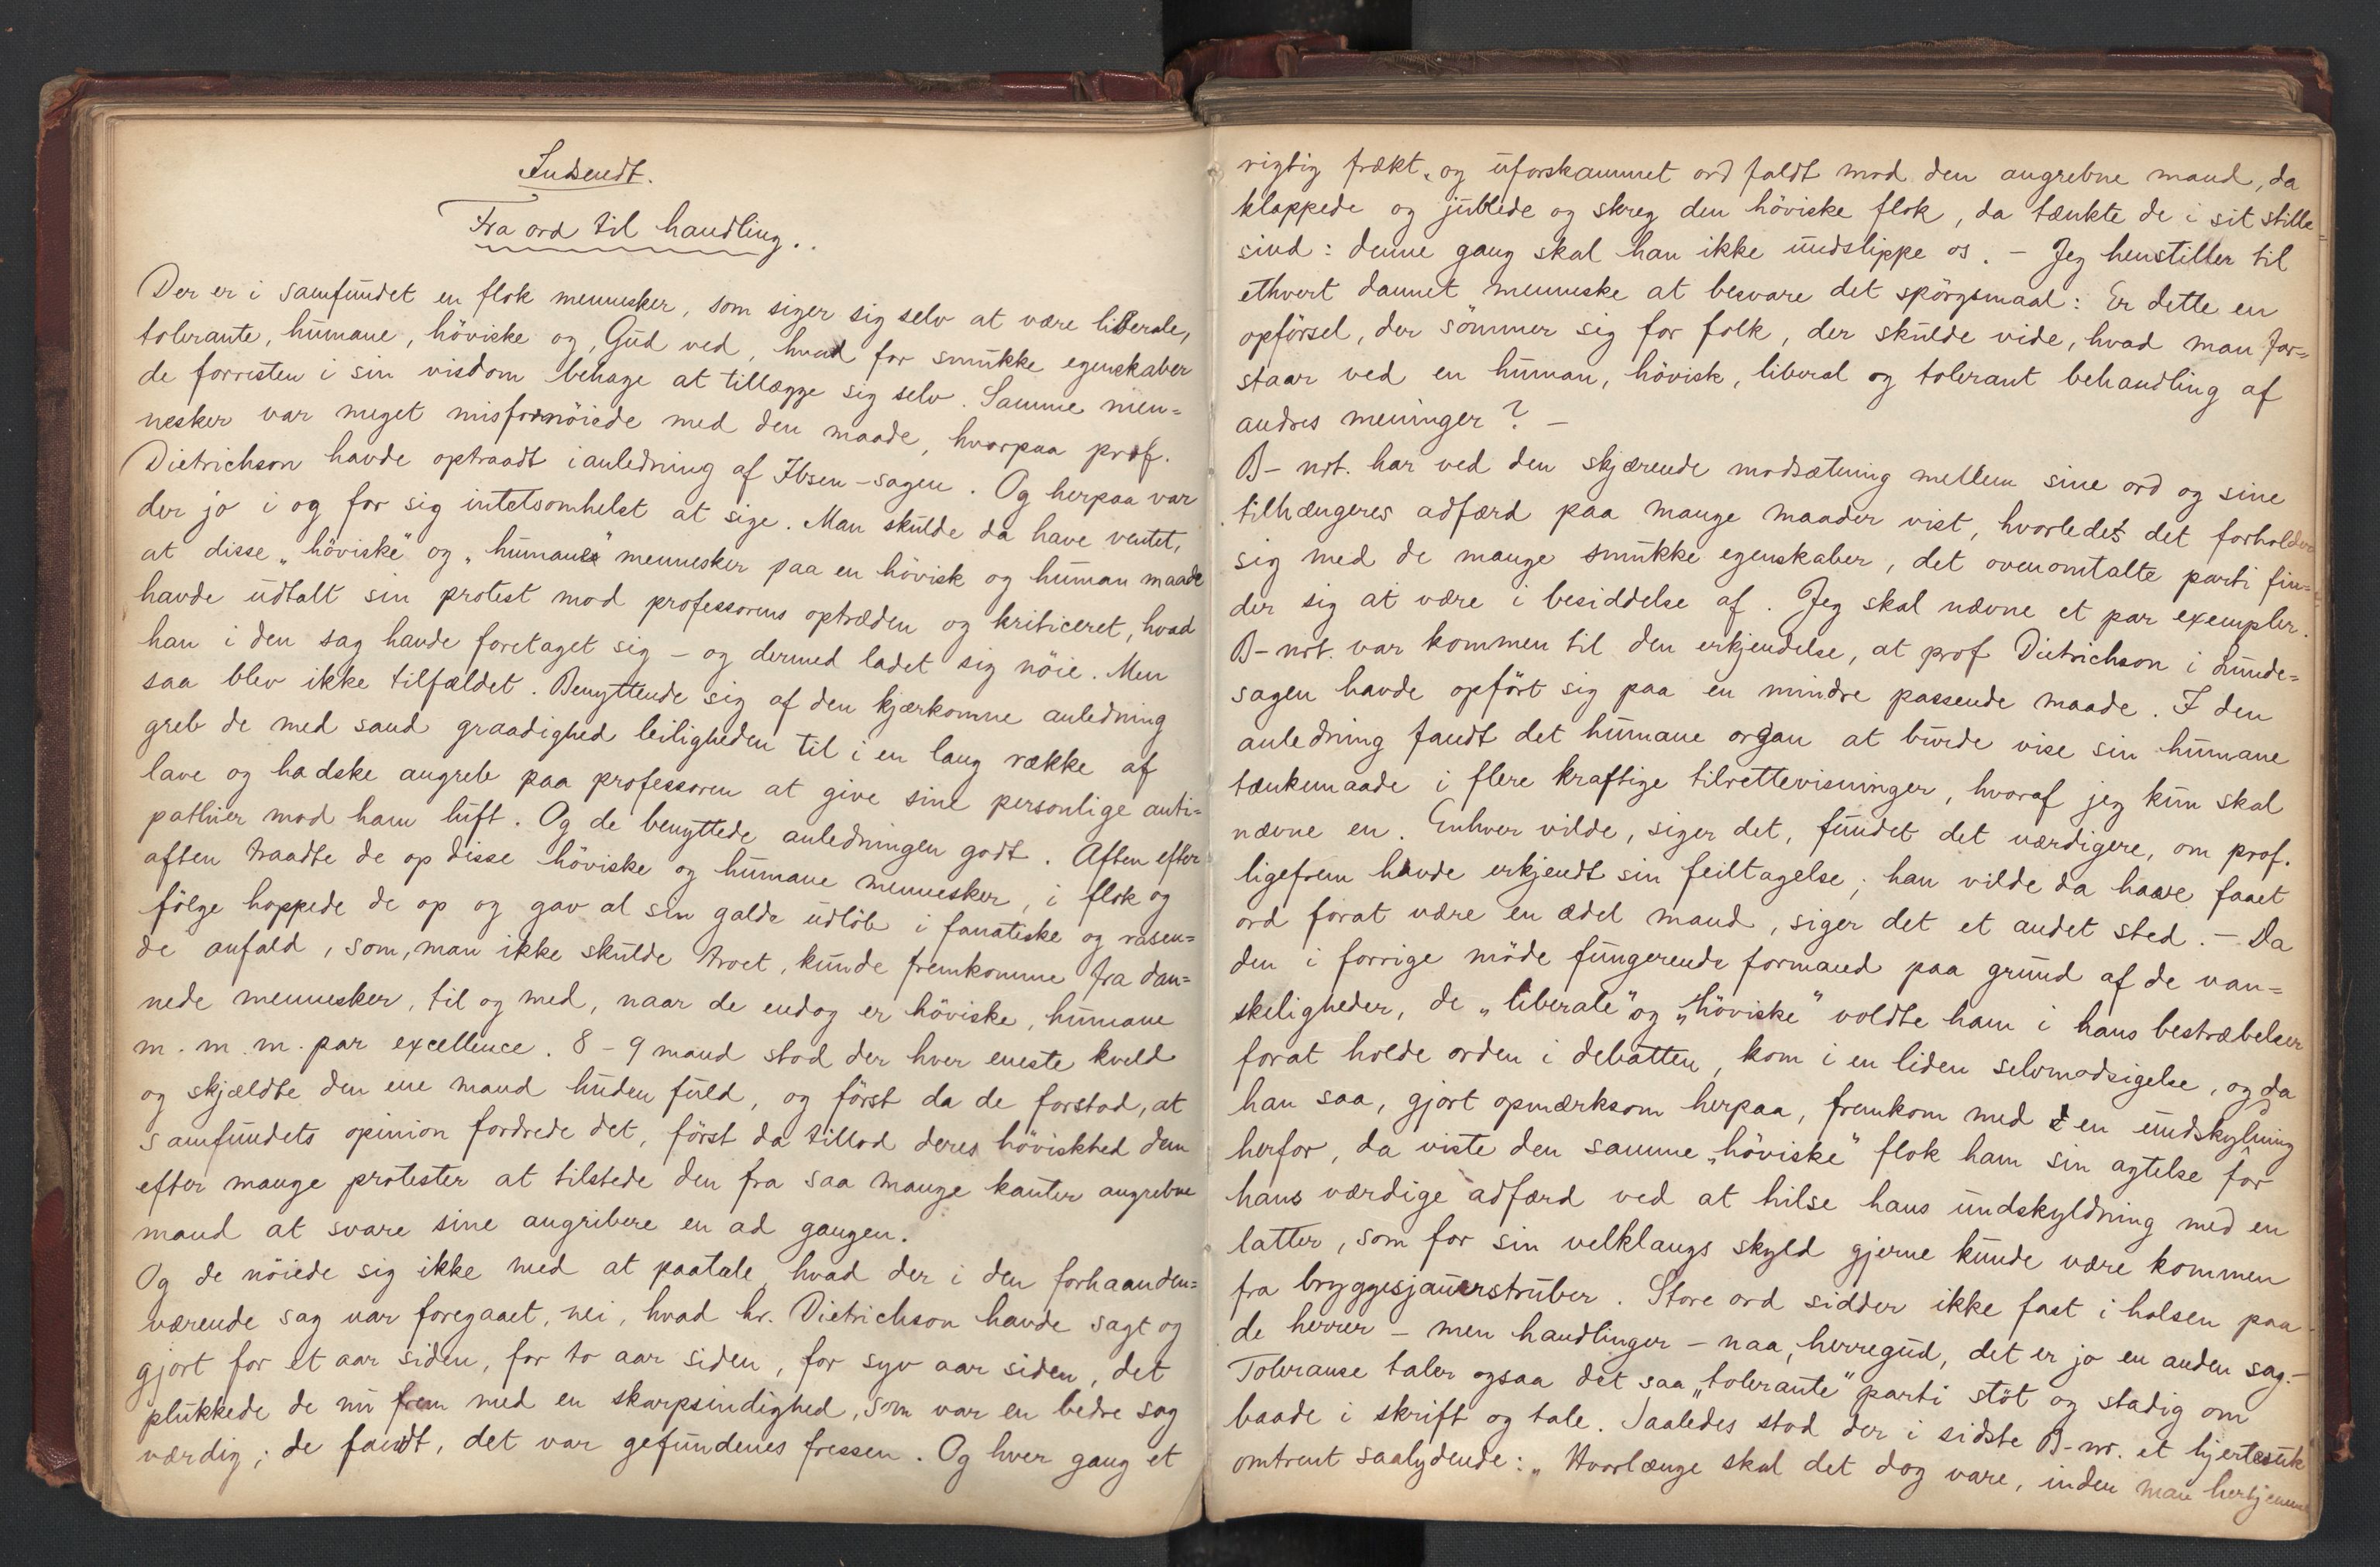 Indsendt.
Fra ord til handling..
Der er i samfundet en flok mennesker, som siger sig selv at være liberale,
tolerante, humane, höviske og, Gud ved, hvad for smukke egenskaber
de forresten i sin visdom behage at tillægge sig selv. Samme men=
nesker var meget misfornöiede med den maade, hvorpaa prof.
Dietrichson havde optraadt i anledning af Ibsen-sagen. Og herpaa var
der jo i og for sig intetsomhelst at sige. Man skulde da have ventet,
at disse „höviske" og „humane" mennesker paa en hövisk og human maade
havde udtalt sin protest mod professorens optræden og kriticeret, hvad
han i den sag havde foretaget sig – og dermed ladet sig nöie. Men
saa blev ikke tilfældet. Benyttende sig af den kjærkomne anledning
greb de med sand graadighed leiligheden til i en lang række af
lave og hadske angreb paa professoren at give sine personlige anti=
pathier mod ham luft. Og de benyttede anledningen godt. Aften efter
aften traadte de op disse höviske og humane mennesker, i flok og
fölge hoppede de op og gav al sin galde udlöb i fanatiske og rasen=
de anfald, som, man ikke skulde troet, kunde fremkomme fra dan=
nede mennesker, til og med, naar de endog er höviske, humane
m. m. m. par excellence. 8 – 9 mand stod der hver eneste kveld
og skjældte den ene mand huden fuld, og först da de forstod, at
samfundets opinion fordrede det, först da tillod deres höviskhed dem
efter mange protester at tilstede den fra saa mange kanter angrebne
mand at svare sine angribere en ad gangen.
Og de nöiede sig ikke med at paatale, hvad der i den forhaanden=
værende sag var foregaaet, nei, hvad hr. Dietrichson havde sagt og
gjort for et aar siden, for to aar siden, for syv aar siden, det
plukkede de nu frem med en skarpsindighed, som var en bedre sag
værdig; de fandt, det var gefundenes fressen. Og hver gang et
rigtig frækt og uforskammet ord faldt mod den angrebne mand, da
klappede og jublede og skreg den höviske flok, da tænkte de i sit stille=
sind: denne gang skal han ikke undslippe os. – Jeg henstiller til
ethvert dannet menneske at besvare det spörgsmaal: Er dette en
opförsel, der sömmer sig for folk, der skulde vide, hvad man for=
staar ved en human, hövisk, liberal og tolerant behandling af
andres meninger? –
B – nrt. har ved den skjærende modsætning mellem sine ord og sine
tilhængeres adfærd paa mange maader vist, hvorledes det forholder
sig med de mange smukke egenskaber, det ovenomtalte parti fin=
der sig at være i besiddelse af. Jeg skal nævne et par exempler.
B – nrt. var kommen til den erkjendelse, at prof Dietrichson i Lunde=
sagen havde opfört sig paa en mindre passende maade. I den
anledning fandt det humane organ at burde vise sin humane
tænkemaade i flere kraftige tilrettevisninger, hvoraf jeg kun skal
nævne en. Enhver vilde, siger det, fundet det værdigere, om prof.
ligefrem havde erkjendt sin feiltagelse; han vilde da have faaet
ord forat være en ædel mand, siger det et andet sted. – Da
den i forrige möde fungerende formand paa grund af de van=
skeligheder, de „liberale" og „höviske" voldte ham i hans bestræbelser
forat holde orden i debatten, kom i en liden selvmodsigelse, og da
han saa, gjort opmærksom herpaa, fremkom med en undskyldning
herfor, da viste den samme „höviske" flok ham sin agtelse for
hans værdige adfærd ved at hilse hans undskyldning med en
latter, som for sin velklangs skyld gjerne kunde være kommen
fra bryggesjauerstruber. Store ord sidder ikke fast i halsen paa
de herrer – men handlinger – naa, herregud, det er jo en anden sag. –
Tolerance taler ogsaa det saa „tolerante" parti stöt og stadig om
baade i skrift og tale. Saaledes stod der i sidste B-nr. et hjertesuk
omtrent saalydende: „Hvorlænge skal det dog vare, inden man herhjemme